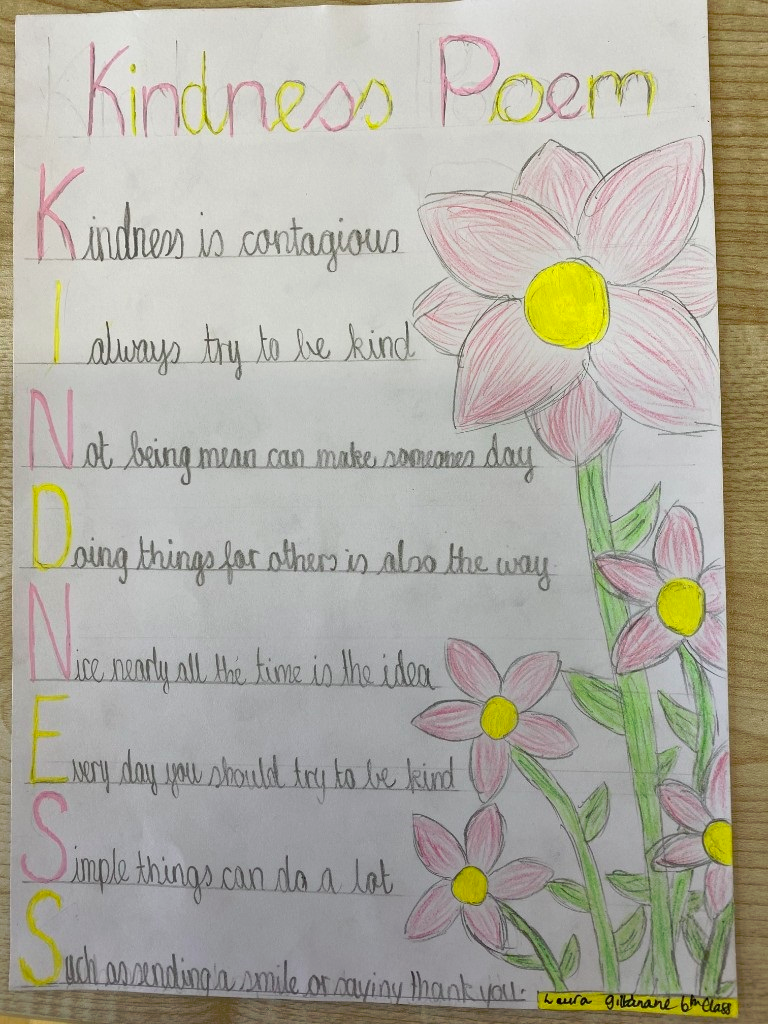 Kindness Poem
Kindness is contagious
I always try to be kind
Not being mean can make someones day
Doing things for others is also the way
Nice nearly all the time is the idea
Every day you should try to be kind
Simple things can do a lot
Such as sending a smile or saying thank you.
Laura 6th Class